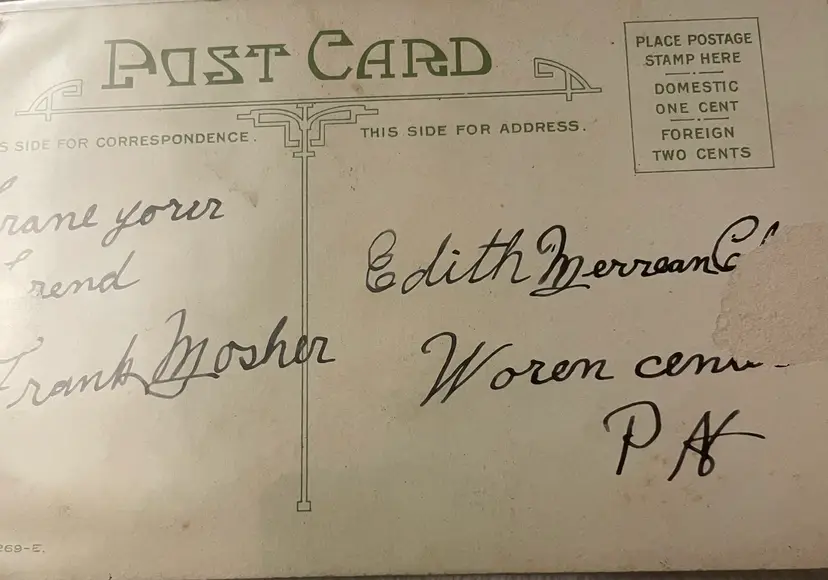 POST CARD
S SIDE FOR CORRESPONDENCE.
THIS SIDE FOR ADDRESS.
PLACE POSTAGE
STAMP HERE
DOMESTIC
ONE CENT
FOREIGN
TWO CENTS
rane yorer
frend
Frank Mosher
Edith Merrean
Woren cen
PA
269-E.